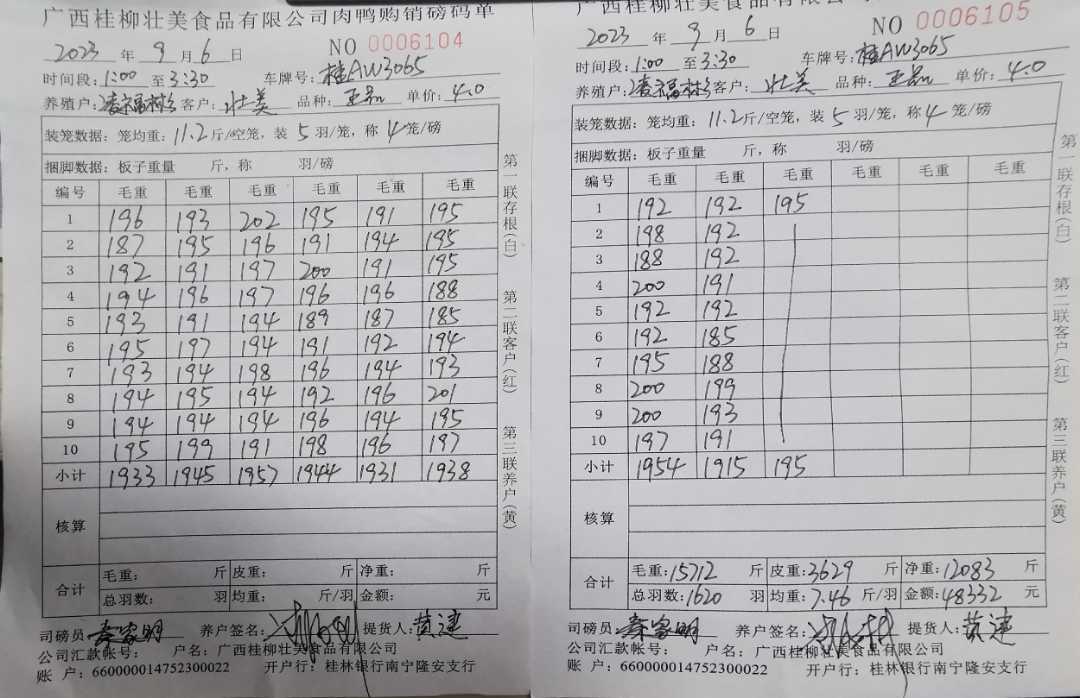 广西桂柳壮美食品有限公司肉鸭购销磅码单
2023 年 9 月 6 日 NO 0006104
时间段:1:00 至3:30 车牌号:桂AW3065
养殖户: 客户:壮美 品种: 单价:4.0
装笼数据: 笼均重:11.2斤/空笼, 装 5 羽/笼, 称 4 笼/磅
捆脚数据: 板子重量 斤, 称 羽/磅
编号 毛重 毛重 毛重 毛重 毛重 毛重
1 196 193 202 195 191 195
2 187 195 196 191 194 195
3 192 191 197 200 191 195
4 194 196 197 196 196 188
5 193 191 194 189 187 185
6 195 197 194 191 192 194
7 193 194 198 196 194 193
8 194 195 194 192 196 201
9 194 194 194 196 194 195
10 195 199 191 198 196 197
小计 1933 1945 1957 1944 1931 1938
核算
合计 毛重: 斤 皮重: 斤 净重: 斤
总羽数: 羽 均重: 斤/羽 金额: 元
司磅员 养户签名: 提货人:黄速
公司汇款帐号: 户名:广西桂柳壮美食品有限公司
账 户:660000014752300022 开户行:桂林银行南宁隆安支行
第一联存根(白)
第二联客户(红)
第三联养户(黄)
广西桂柳壮美食品有限公
2023 年 9 月 6 日 NO 0006105
时间段:1:00 至3:30 车牌号:桂AW3065
养殖户: 客户:壮美 品种: 单价:4.0
装笼数据: 笼均重:11.2斤/空笼, 装 5 羽/笼, 称 4 笼/磅
捆脚数据: 板子重量 斤, 称 羽/磅
编号 毛重 毛重 毛重 毛重 毛重 毛重
1 192 192 195
2 198 192
3 188 192
4 200 191
5 192 192
6 192 185
7 195 188
8 200 199
9 200 193
10 197 191
小计 1954 1915 195
核算
合计 毛重:15712 斤 皮重:3629 斤 净重:12083 斤
总羽数:1620 羽 均重:7.46 斤/羽 金额:48332 元
司磅员 养户签名: 提货人:黄速
公司汇款帐号: 户名:广西桂柳壮美食品有限公司
账 户:660000014752300022 开户行:桂林银行南宁隆安支行
第一联存根(白)
第二联客户(红)
第三联养户(黄)